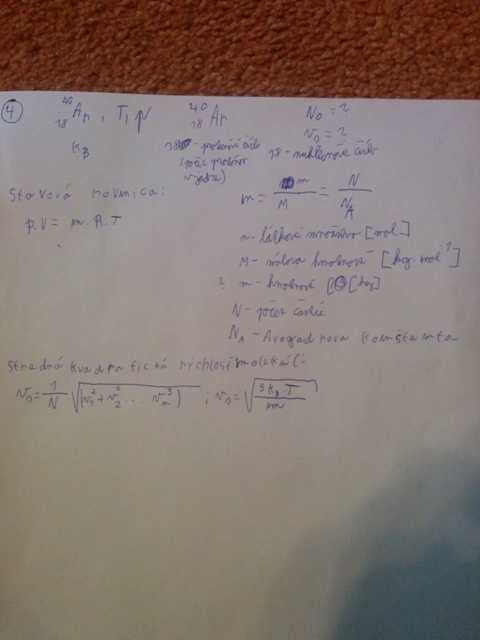 4 ⁴⁰₁₈Ar, T, p ⁴⁰₁₈Ar N₀ = ?
k_B v₀ = ?
18 - protónové číslo
(počet protónov
v jadre)
- nukleónové číslo
Stavová rovnica:
p.V = n.R.T
n = m / M = N / N_A
n - látkové množstvo [mol]
M - mólová hmotnosť [kg.mol⁻¹]
? m - hmotnosť [kg]
N - počet častíc
N_A - Avogadrova konštanta
Stredná kvadratická rýchlosť molekúl:
v₀ = 1/N √(v₁² + v₂² ... vₙ²) ; v₀ = √(3k_B.T / m)